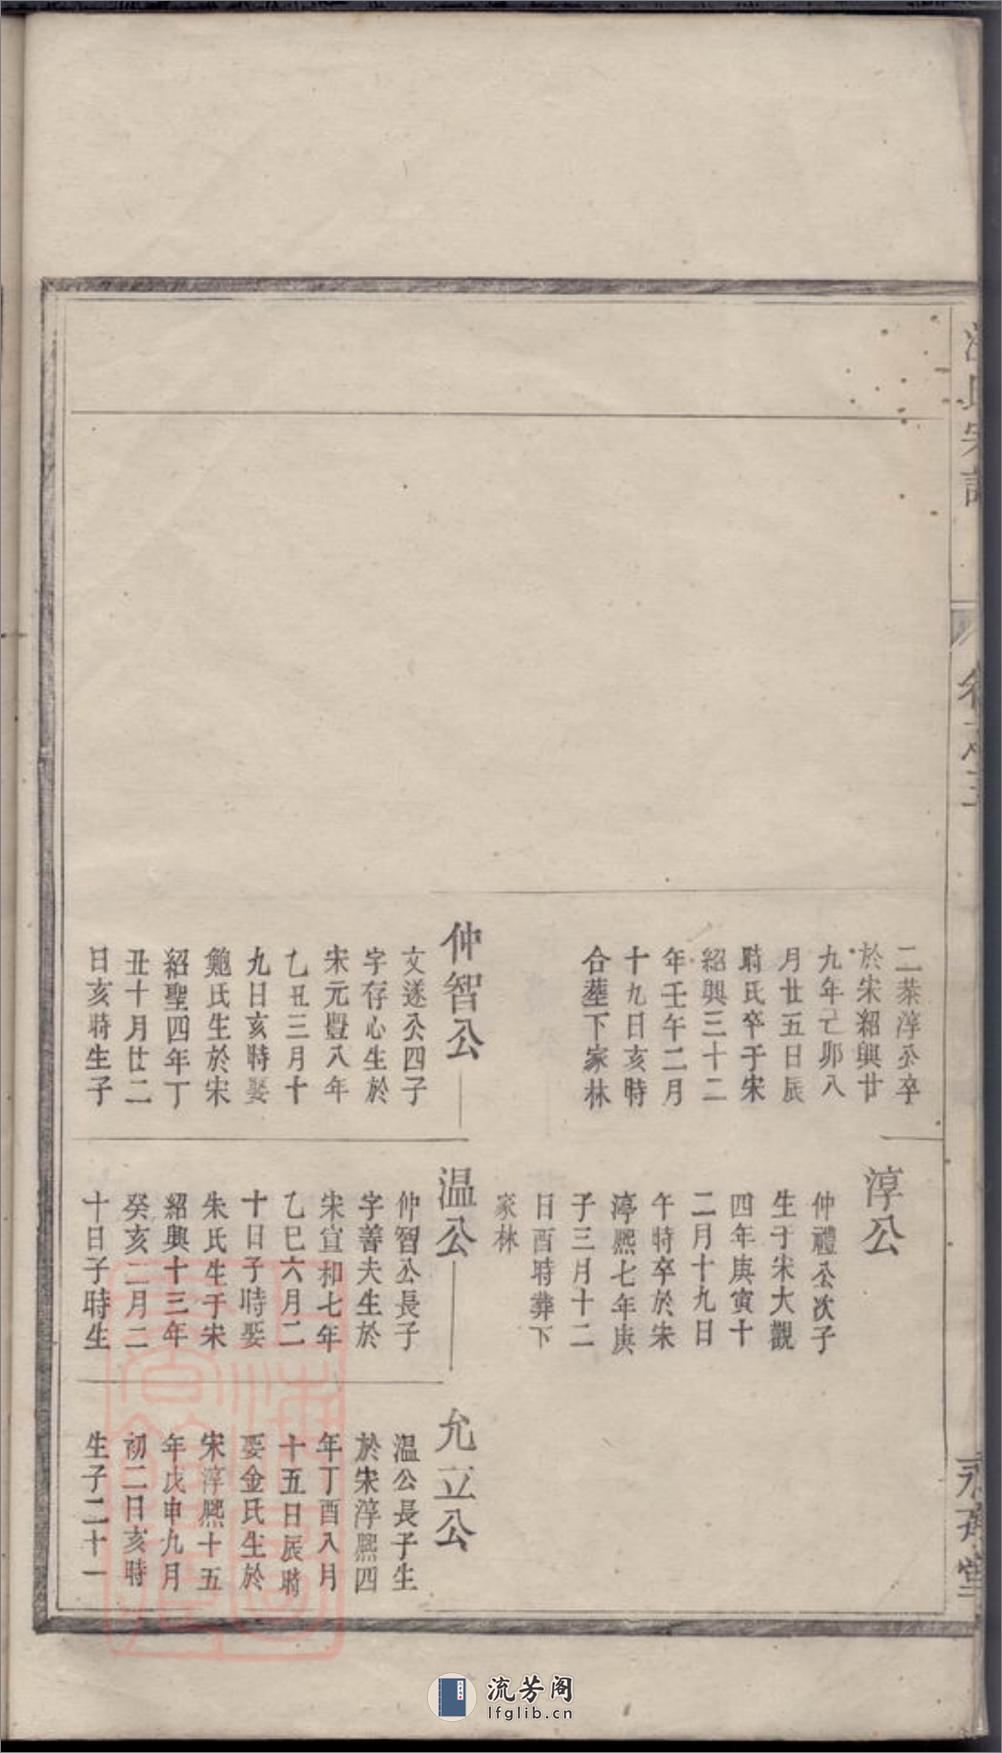 氏宗譜
卷之五
二葬淳公卒
於宋紹興廿
九年己卯八
月廿五日辰
時氏卒于宋
紹興三十二
年壬午二月
十九日亥時
合塟下家林
仲智公
文遂公四子
字存心生於
宋元豐八年
乙丑三月十
九日亥時娶
鮑氏生於宋
紹聖四年丁
丑十月廿二
日亥時生子
淳公
仲禮公次子
生于宋大觀
四年庚寅十
二月十九日
午時卒於宋
淳熙七年庚
子三月十二
日酉時葬下
家林
温公
仲智公長子
字善夫生於
宋宣和七年
乙巳六月二
十日子時娶
朱氏生于宋
紹興十三年
癸亥二月二
十日子時生
允立公
温公長子生
於宋淳熙四
年丁酉八月
十五日辰時
娶金氏生於
宋淳熙十五
年戊申九月
初二日亥時
生子二十一
堂
流芳阁
lfglib.cn